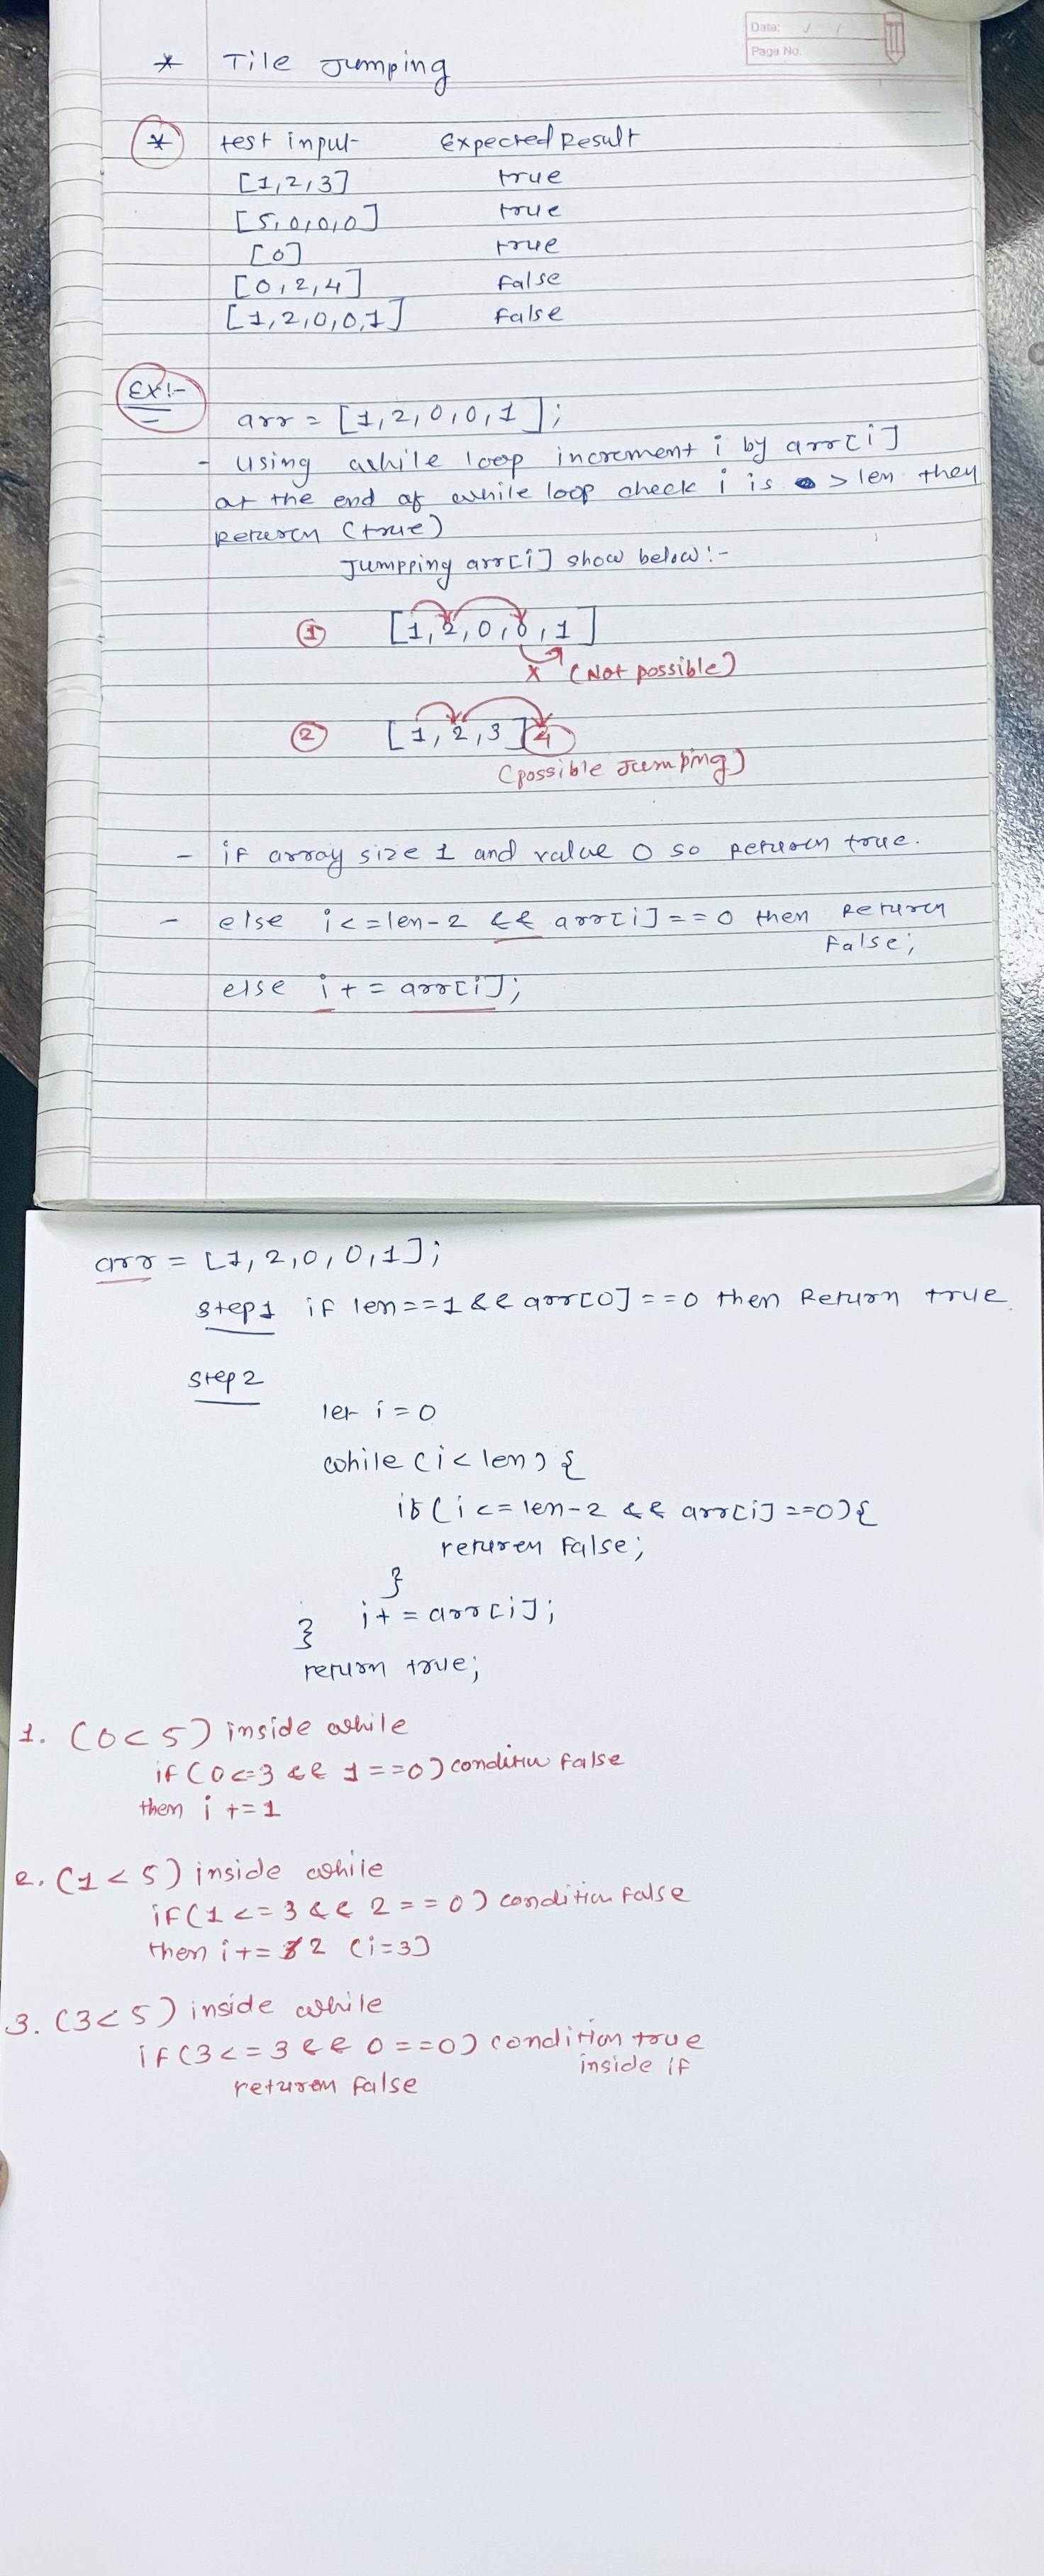 Data: / /
Page No.
* Tile Jumping
* test input Expected Result
[1,2,3] true
[5,0,0,0] true
[0] true
[0,2,4] False
[1,2,0,0,1] False
Ex:-
arr = [1,2,0,0,1];
- Using while loop increment i by arr[i]
at the end of while loop check i is > len they
Return (true)
Jumpping arr[i] show below:-
① [1,2,0,0,1]
x (Not possible)
② [1,2,3] 4
(possible Jumping)
- if array size 1 and value 0 so return true.
- else i<=len-2 && arr[i]==0 then Return
False;
else i+=arr[i];
arr = [1,2,0,0,1];
Step1 if len==1 && arr[0]==0 then Return true
Step 2
let i=0
while (i<len) {
if (i<=len-2 && arr[i]==0){
return False;
}
i+=arr[i];
}
return true;
1. (0<5) inside while
if (0<=3 && 1==0) condition false
then i+=1
2. (1<5) inside while
if (1<=3 && 2==0) condition false
then i+=2 (i=3)
3. (3<5) inside while
if (3<=3 && 0==0) condition true
inside if
return false